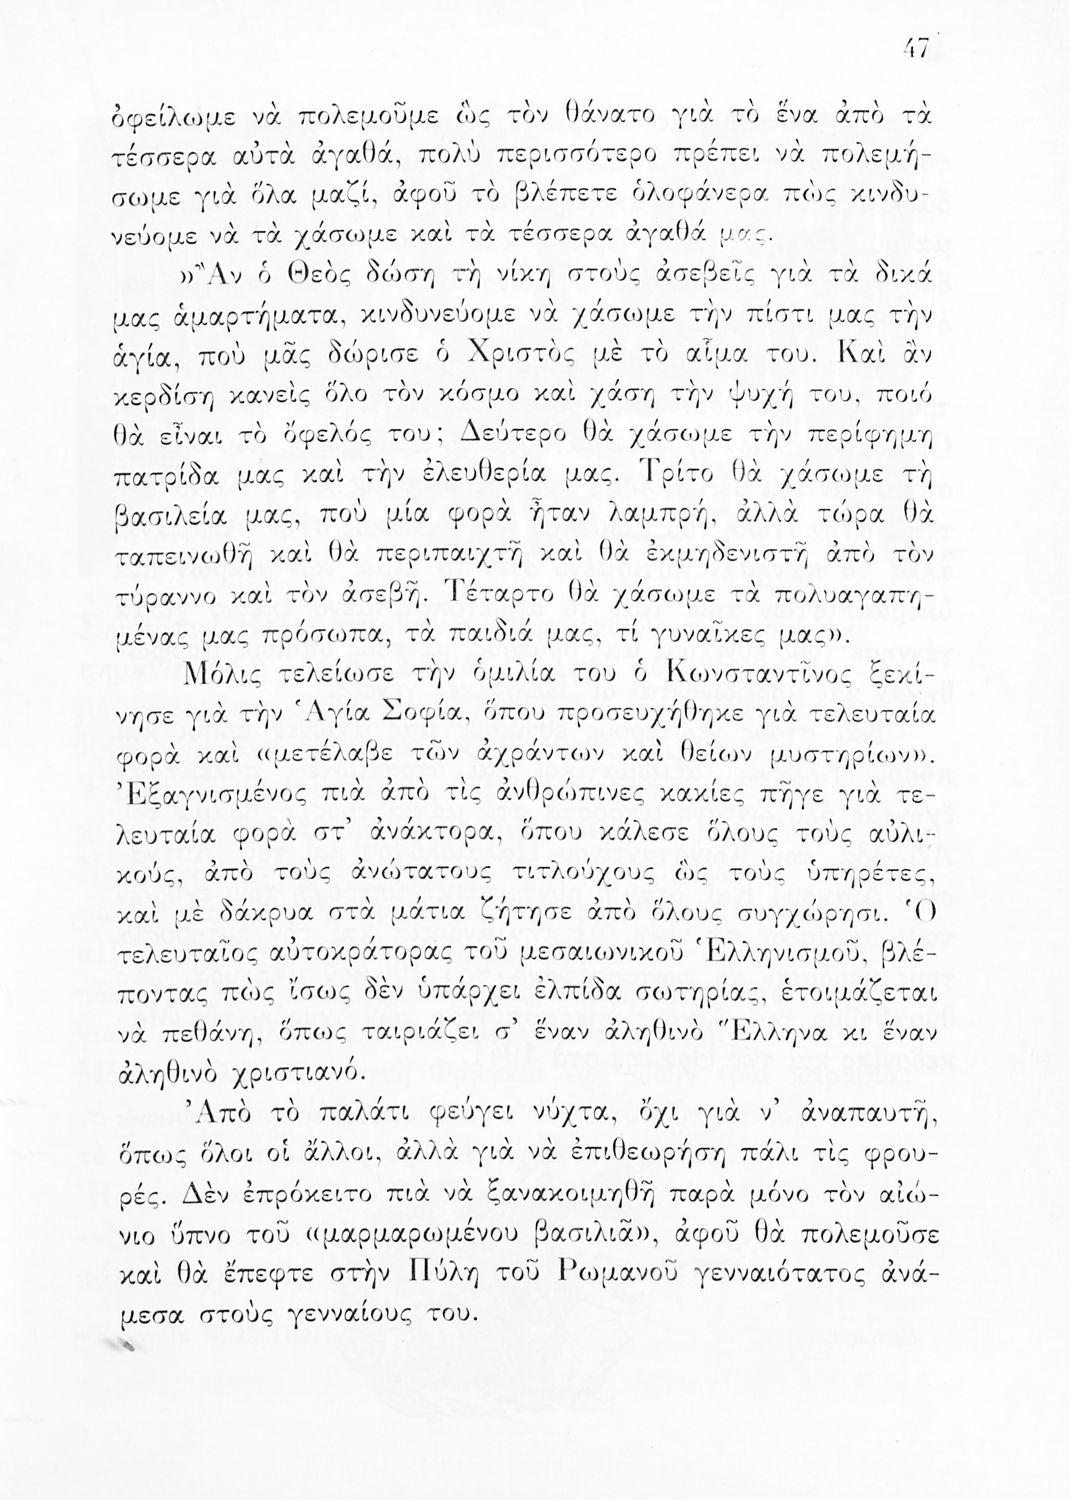 47
ὀφείλωμε νὰ πολεμοῦμε ὣς τὸν θάνατο γιὰ τὸ ἕνα ἀπὸ τὰ
τέσσερα αὐτὰ ἀγαθά, πολὺ περισσότερο πρέπει νὰ πολεμή-
σωμε γιὰ ὅλα μαζί, ἀφοῦ τὸ βλέπετε ὁλοφάνερα πὼς κινδυ-
νεύομε νὰ τὰ χάσωμε καὶ τὰ τέσσερα ἀγαθά μας.
»Ἂν ὁ Θεὸς δώση τὴ νίκη στοὺς ἀσεβεῖς γιὰ τὰ δικά
μας ἁμαρτήματα, κινδυνεύομε νὰ χάσωμε τὴν πίστι μας τὴν
ἁγία, ποὺ μᾶς δώρισε ὁ Χριστὸς μὲ τὸ αἷμα του. Καὶ ἂν
κερδίση κανεὶς ὅλο τὸν κόσμο καὶ χάση τὴν ψυχή του, ποιό
θὰ εἶναι τὸ ὄφελός του; Δεύτερο θὰ χάσωμε τὴν περίφημη
πατρίδα μας καὶ τὴν ἐλευθερία μας. Τρίτο θὰ χάσωμε τὴ
βασιλεία μας, ποὺ μία φορὰ ἦταν λαμπρή, ἀλλὰ τώρα θὰ
ταπεινωθῆ καὶ θὰ περιπαιχτῆ καὶ θὰ ἐκμηδενιστῆ ἀπὸ τὸν
τύραννο καὶ τὸν ἀσεβῆ. Τέταρτο θὰ χάσωμε τὰ πολυαγαπη-
μένας μας πρόσωπα, τὰ παιδιά μας, τί γυναῖκες μας».
Μόλις τελείωσε τὴν ὁμιλία του ὁ Κωνσταντῖνος ξεκί-
νησε γιὰ τὴν Ἁγία Σοφία, ὅπου προσευχήθηκε γιὰ τελευταία
φορὰ καὶ «μετέλαβε τῶν ἀχράντων καὶ θείων μυστηρίων».
Ἐξαγνισμένος πιὰ ἀπὸ τὶς ἀνθρώπινες κακίες πῆγε γιὰ τε-
λευταία φορὰ στ’ ἀνάκτορα, ὅπου κάλεσε ὅλους τοὺς αὐλι-
κούς, ἀπὸ τοὺς ἀνώτατους τιτλούχους ὣς τοὺς ὑπηρέτες,
καὶ μὲ δάκρυα στὰ μάτια ζήτησε ἀπὸ ὅλους συγχώρησι. Ὁ
τελευταῖος αὐτοκράτορας τοῦ μεσαιωνικοῦ Ἑλληνισμοῦ, βλέ-
ποντας πὼς ἴσως δὲν ὑπάρχει ἐλπίδα σωτηρίας, ἑτοιμάζεται
νὰ πεθάνη, ὅπως ταιριάζει σ’ ἕναν ἀληθινὸ Ἕλληνα κι ἕναν
ἀληθινὸ χριστιανό.
Ἀπὸ τὸ παλάτι φεύγει νύχτα, ὄχι γιὰ ν’ ἀναπαυτῆ,
ὅπως ὅλοι οἱ ἄλλοι, ἀλλὰ γιὰ νὰ ἐπιθεωρήση πάλι τὶς φρου-
ρές. Δὲν ἐπρόκειτο πιὰ νὰ ξανακοιμηθῆ παρὰ μόνο τὸν αἰώ-
νιο ὕπνο τοῦ «μαρμαρωμένου βασιλιᾶ», ἀφοῦ θὰ πολεμοῦσε
καὶ θὰ ἔπεφτε στὴν Πύλη τοῦ Ρωμανοῦ γενναιότατος ἀνά-
μεσα στοὺς γενναίους του.